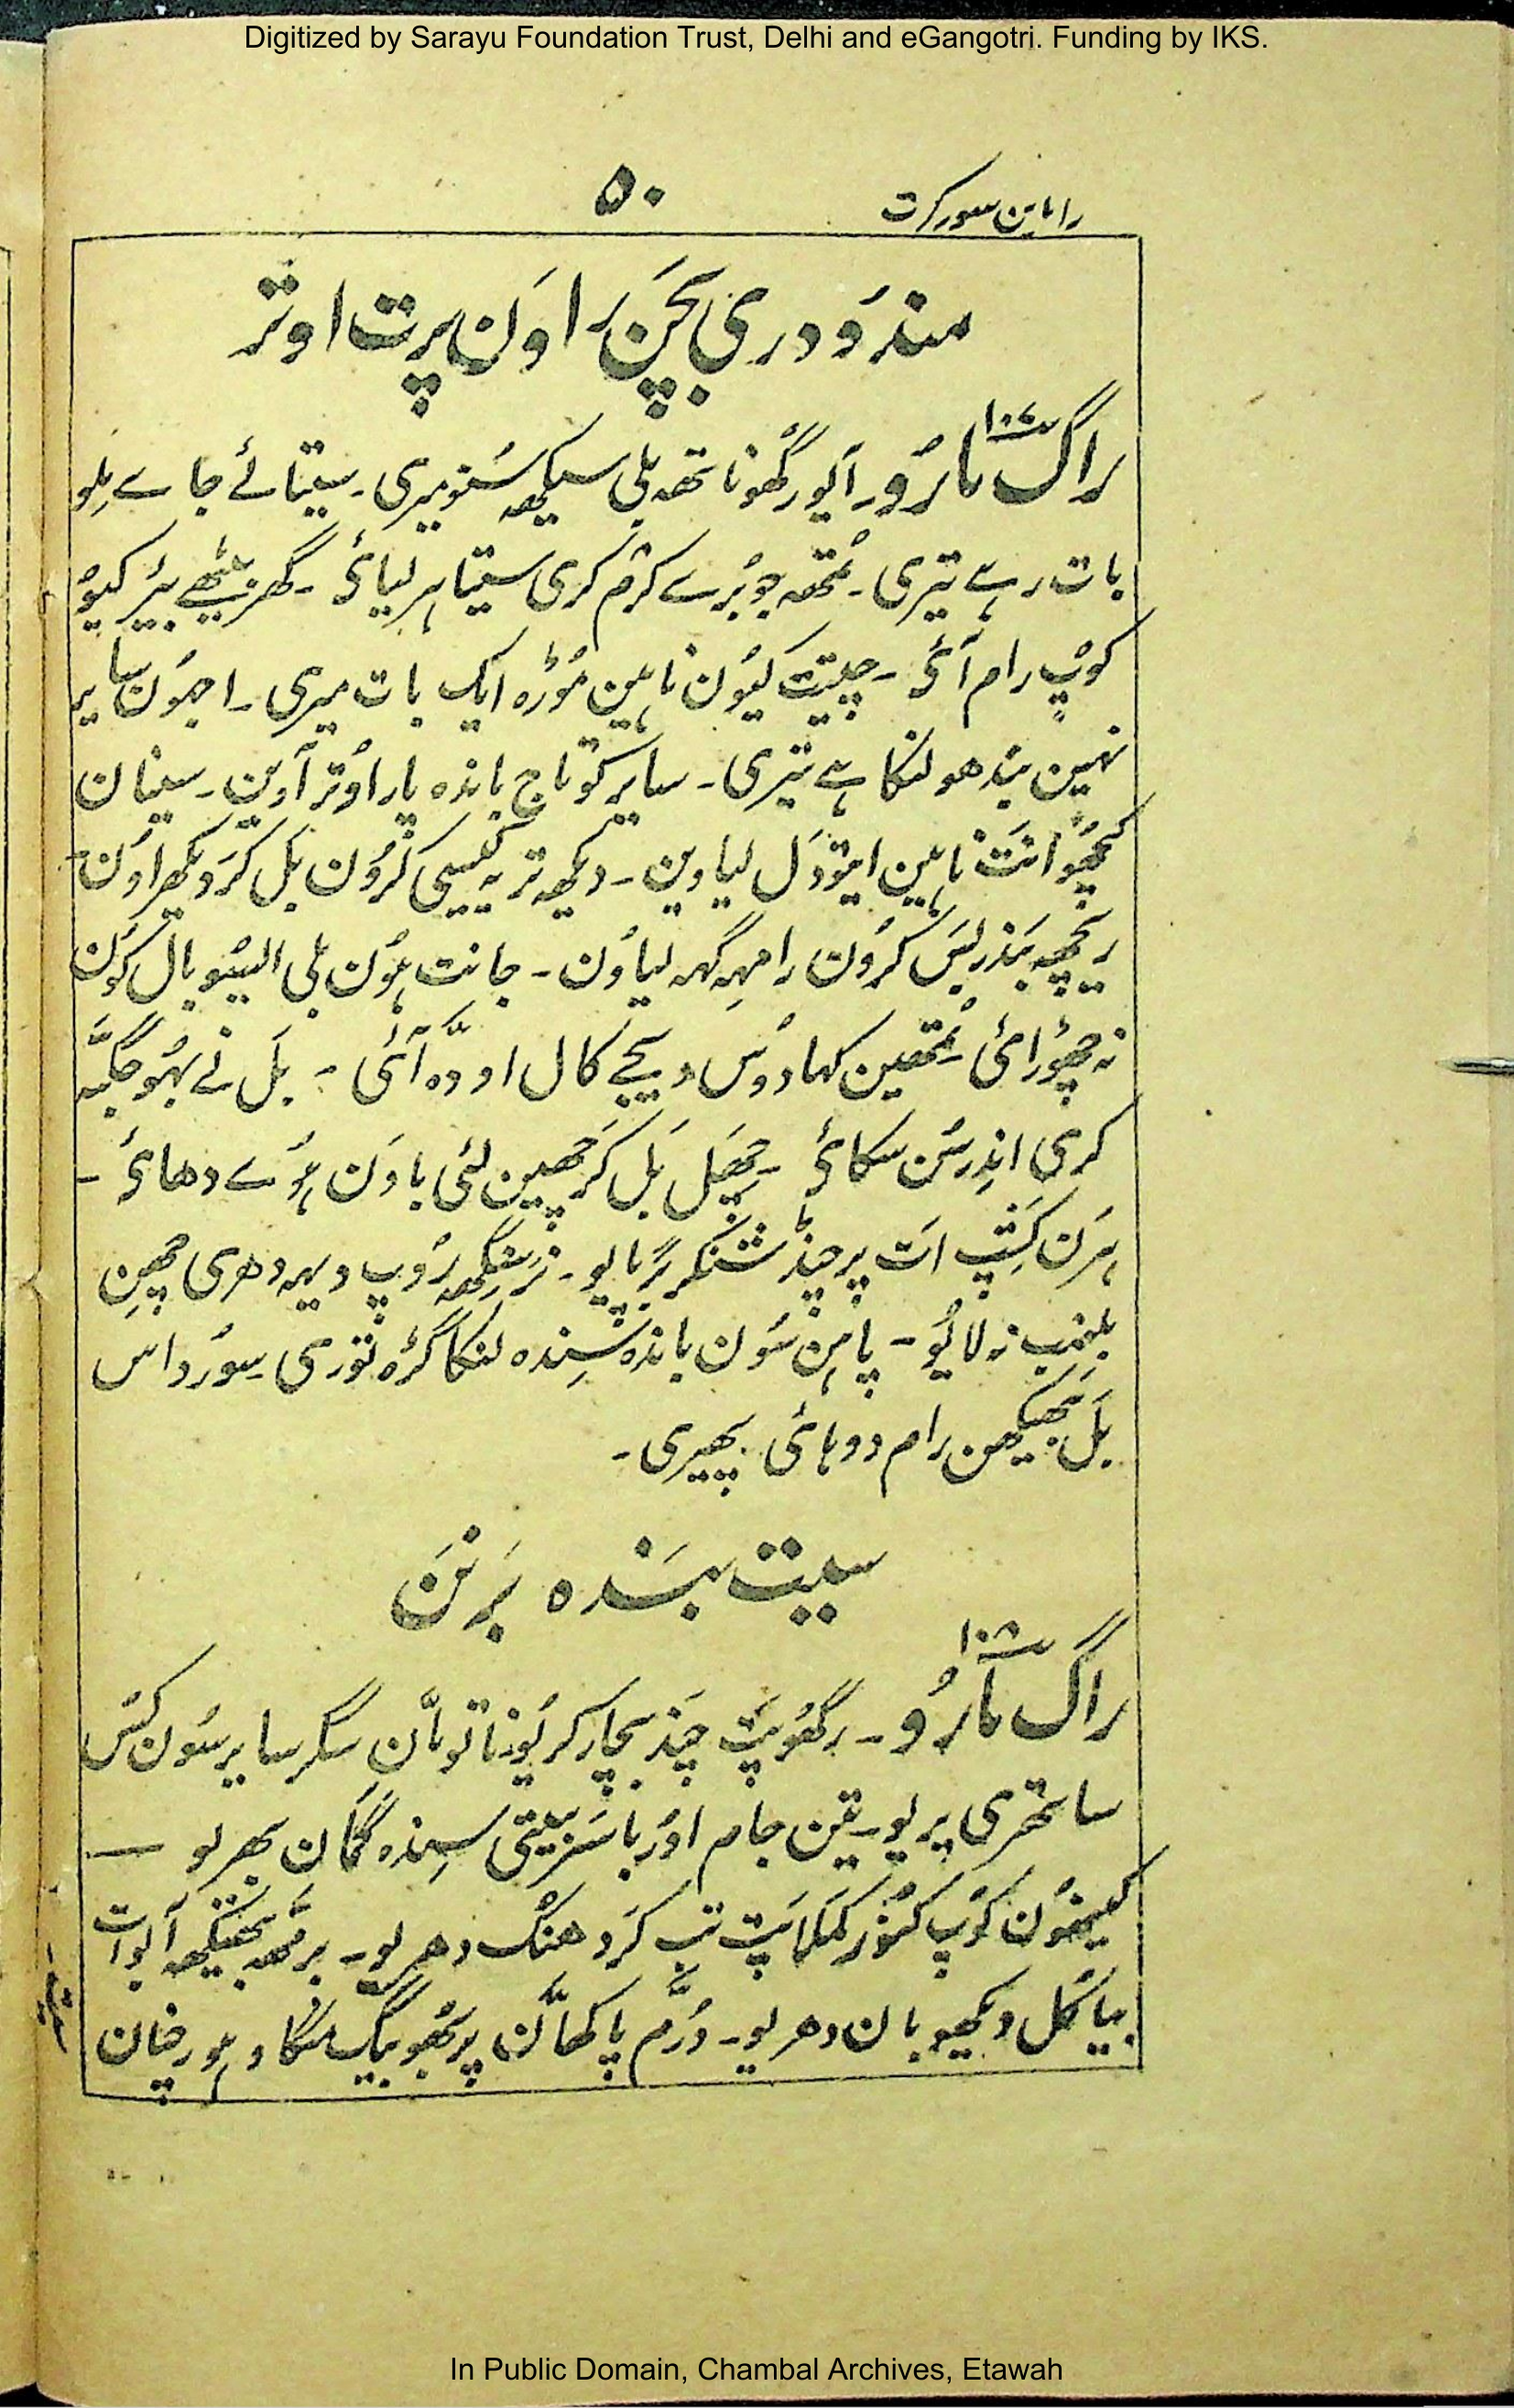 Digitized by Sarayu Foundation Trust, Delhi and eGangotri. Funding by IKS.
راماین سورکرت ۵۰
مندُودری بَچَن رَاوَن پرت اوتر
۱۰۷
راگ مارُو۔ آیو رگھوناتھ بلی سیکھ سُنو میری۔ سیتا لئے جاے مِلو
بات رہے تیری۔ تُمھ جو بُرے کرم کری سیتا ہر لیائی۔ گھر بیٹھے بیَر کیو
کوپ رام آئی۔ چیتیت کیُون ناہین مُوڑہ ایک بات میری۔ اجہُون سایر
نہین بندھو لنکا ہے تیری۔ سایر کو تاج باندہ پار اوُتر آوین۔ سینا ان
کچھو انَت ناہین ایتو دَل لیاوین۔ دیکھ تریہ کیسی کرُون بَل کرَ دیکھراوُن۔
ریچھ بندر بَس کرُون رامہِہ گہہ لیاوُن۔ جانت ہُون بلی ایسو بال کون
نہ چھوُرائی تُمھین کہا دوس دیجے کال اودہ آئی۔ بَل نے بہُو جگیَّہ
کری اندِر سُن سکائی۔ چھَل بَل کرَ چھین لئی باوَن ہوُے دھائی۔
ہرَن کَشِپ اَت پرچنڈ شنکر برَ پایو۔ نرَسِنگھ رُوپ دیہہ دھری چھِن
بلنمب نہ لایُو۔ پاہن سُون باندہ سِندہ لنکا گڑہ توری سِورداس
بَل بھبیکھن رام دوہائی پھیری۔
سیت بَندہ بَرنَن
۱۰۸
راگ مارُو۔ رگھُوپت چند بچار کریُو ناتو مان سگر سایر سُون کُس
ساتھری پریو۔ تین جام اور باسَر بیتی سِندہ گُمان بھریو —
کیھنُون کوپ کنُور کمَلاپَت تب کرَ دھنُک دھریو۔ برمھ بھیکھ آیوات
بیاکُل دیکھیو بان دھریو۔ دُرَّم پاکھاَّن پربھُو بیگ منگاو ہو رچان
In Public Domain, Chambal Archives, Etawah